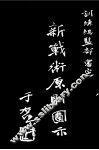 訓練總監部審定
新戰術原則圖示
于右任